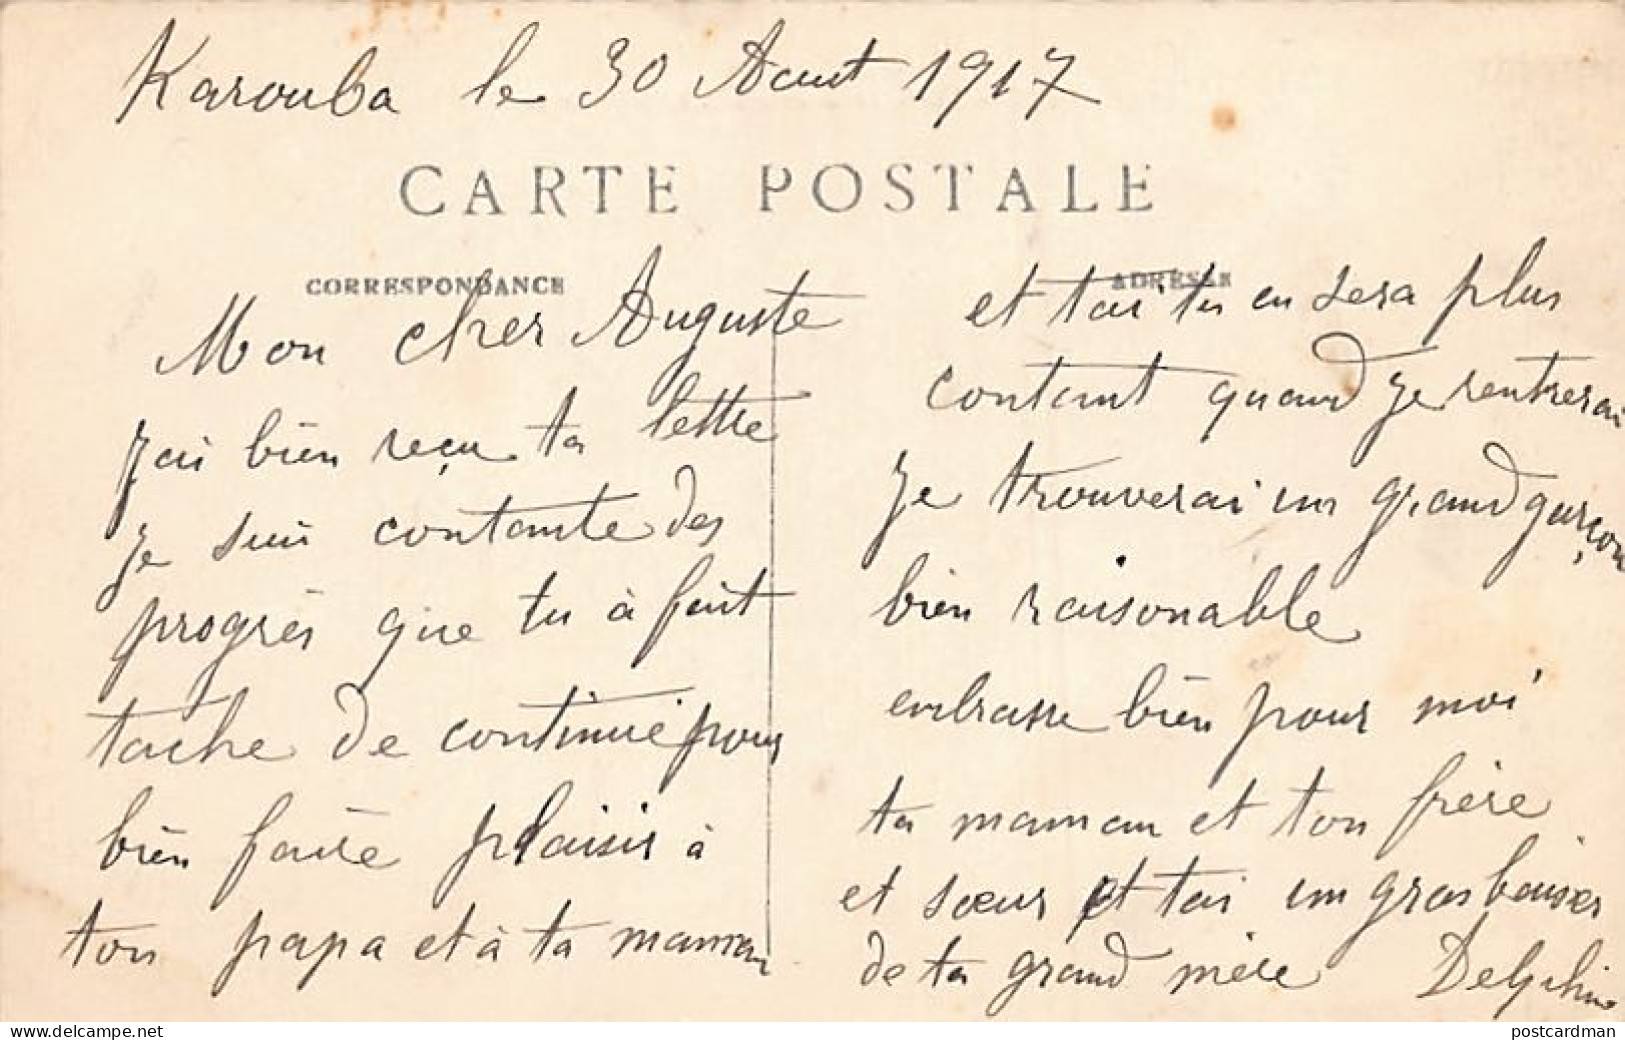 Karouba le 30 Aout 1917
CARTE POSTALE
CORRESPONDANCE
ADRESSE
Mon cher Auguste
j'ai bien reçu ta lettre
je suis contante des
progrès que tu à fait
tache de continué pour
bien faire plaisir à
ton papa et à ta maman
et toi tu en sera plus
contant quand je rentrerai
je trouverai un grand garçon
bien raisonable
embrasse bien pour moi
ta maman et ton frère
et sœur et toi un gros baiser
de ta grand mère Delphine
www.delcampe.net
postcardman